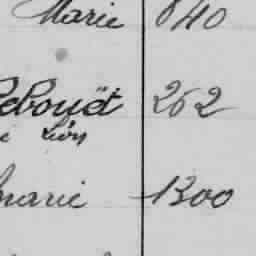 Marie 840
Rebouët 262
Léon
marie 1300